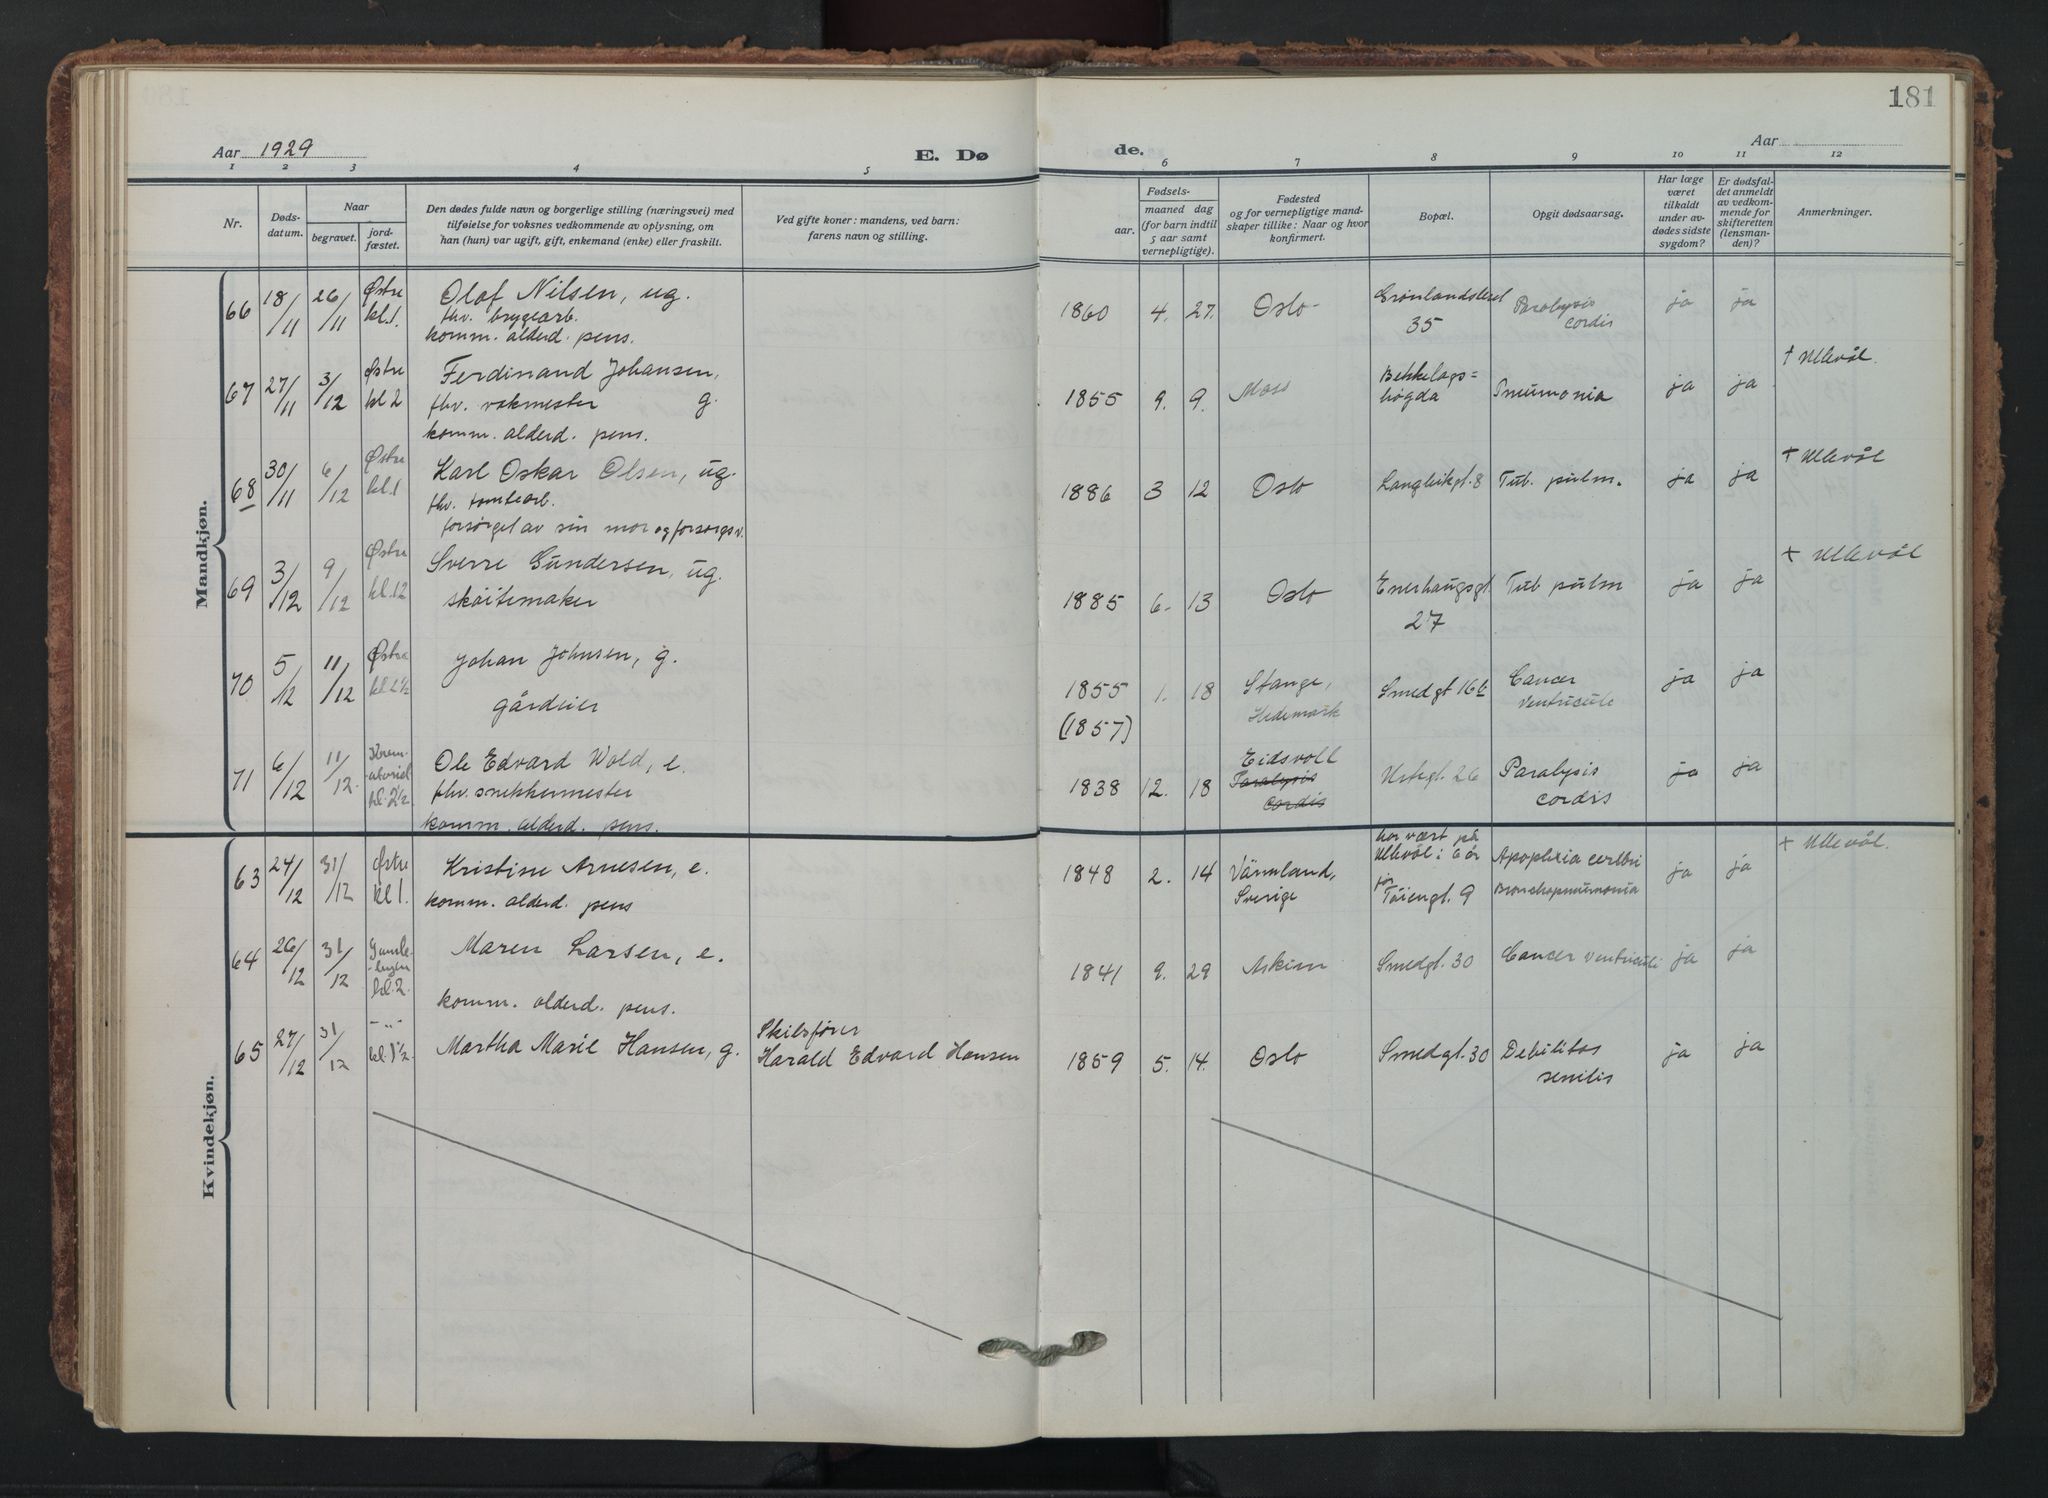 181
Aar 1929
E. Dø
de.
Aar
1 2 3 4 5 6 7 8 9 10 11 12
Nr.
Døds-
datum.
Naar
begravet.
jord-
fæstet.
Den dødes fulde navn og borgerlige stilling (næringsvei) med
tilføielse for voksnes vedkommende av oplysning, om
han (hun) var ugift, gift, enkemand (enke) eller fraskilt.
Ved gifte koner: mandens, ved barn:
farens navn og stilling.
Fødsels-
aar.
maaned dag
(for barn indtil
5 aar samt
vernepligtige).
Fødested
og for vernepligtige mand-
skaper tillike: Naar og hvor
konfirmert.
Bopæl.
Opgit dødsaarsag.
Har læge
været
tilkaldt
under av-
dødes sidste
sygdom?
Er dødsfal-
det anmeldt
av vedkom-
mende for
skifteretten
(lensman-
den)?
Anmerkninger.
Mandkjøn.
66 18/11 26/11 Østre kl.1.
Olaf Nilsen, ug.
fhv. bryggearb.
komm. alderd. pens.
1860 4. 27. Oslo Grønlandsleret 35 Paralysis cordis ja ja
67 27/11 3/12 Østre kl 2
Ferdinand Johansen,
fhv. vakmester g.
komm. alderd. pens.
1855 9. 9. Moss Bekkelags=høgda Pneumonia ja ja † Ullevål.
68 30/11 6/12 Østre kl.1
Karl Oskar Olsen, ug.
fhv. tomtearb.
forsørget av sin mor og forsorgsv.
1886 3 12 Oslo Langleikgt. 8 Tub. pulm. ja ja † Ullevål
69 3/12 9/12 Østre kl.12
Sverre Gundersen, ug.
skøitemaker
1885 6. 13 Oslo Enerhaugsgt. 27 Tub pulm ja ja + Ullevål
70 5/12 11/12 Østre kl 2½
Johan Johnsen, g.
gårdeier
1855 (1857) 1. 18 Stange, Hedemark Smedgt 16b Cancer ventriculi ja ja
71 6/12 11/12. Krem-atoriet kl. 2½
Ole Edvard Wold, e.
fhv. snekkermester
komm. alderd. pens.
1838 12. 18 Eidsvoll Paralysis cordis Urtegt. 26 Paralysis cordis ja ja
Kvindekjøn.
63 24/12 31/12 Østre kl 1.
Kristine Arnesen, e.
komm. alderd. pens
1848 2. 14 Värmland, Sverige har vært på Ullevål i 6 år før Tøiengt. 9 Apoplexia cerebri Bronchopneumonia ja ja + Ullevål.
64 26/12 31/12 Gamle-byen kl. 2.
Maren Larsen, e.
komm. alderd. pens.
1841 9. 29 Askim Smedgt. 30 Cancer ventriculi ja ja
65 27/12 31/12 -"- kl. 1½
Martha Marie Hansen, g.
Skibsfører
Harald Edvard Hansen
1859 5. 14. Oslo Smedgt. 30 Debilitas senilis ja ja